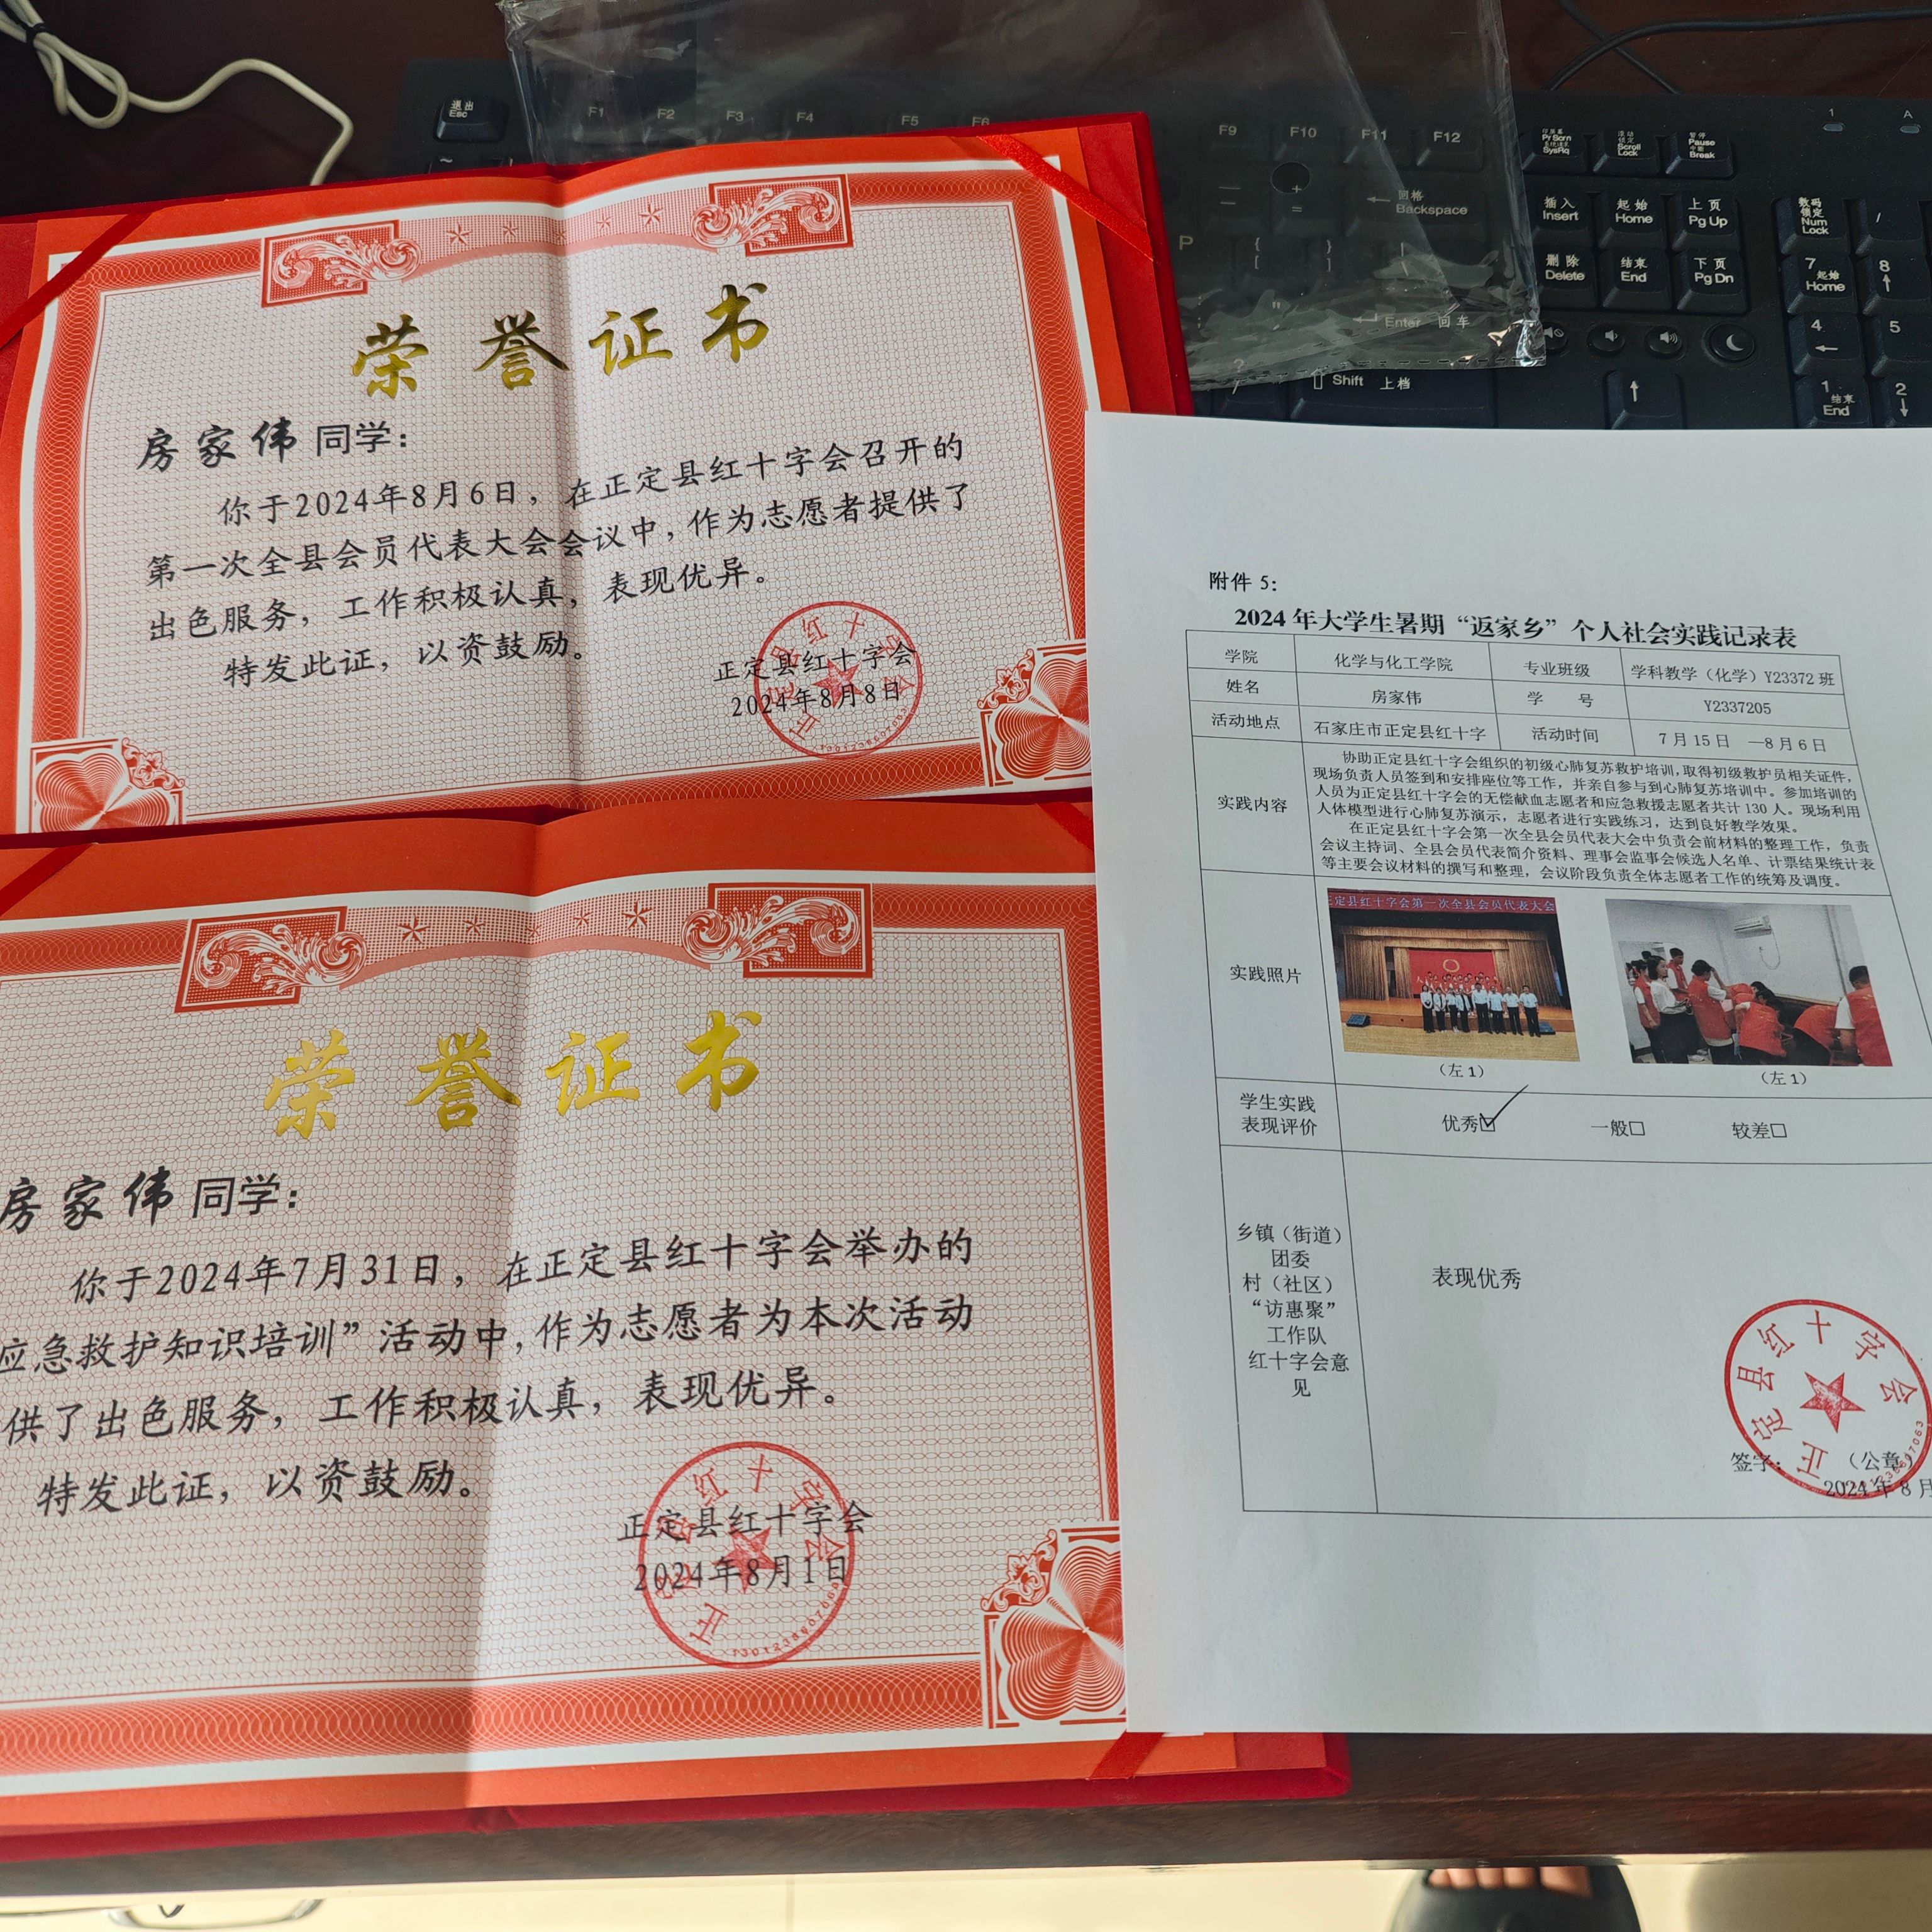 荣誉证书
房家伟 同学：
你于2024年8月6日，在正定县红十字会召开的
第一次全县会员代表大会会议中，作为志愿者提供了
出色服务，工作积极认真，表现优异。
特发此证，以资鼓励。
正定县红十字会
2024年8月8日
荣誉证书
房家伟 同学：
你于2024年7月31日，在正定县红十字会举办的
应急救护知识培训”活动中，作为志愿者为本次活动
供了出色服务，工作积极认真，表现优异。
特发此证，以资鼓励。
正定县红十字会
2024年8月1日
附件 5：
2024 年大学生暑期“返家乡”个人社会实践记录表
学院 化学与化工学院 专业班级 学科教学（化学）Y23372 班
姓名 房家伟 学 号 Y2337205
活动地点 石家庄市正定县红十字 活动时间 7 月 15 日 —8 月 6 日
实践内容
协助正定县红十字会组织的初级心肺复苏救护培训，取得初级救护员相关证件，
现场负责人员签到和安排座位等工作，并亲自参与到心肺复苏培训中。参加培训的
人员为正定县红十字会的无偿献血志愿者和应急救援志愿者共计 130 人。现场利用
人体模型进行心肺复苏演示，志愿者进行实践练习，达到良好教学效果。
在正定县红十字会第一次全县会员代表大会中负责会前材料的整理工作，负责
会议主持词、全县会员代表简介资料、理事会监事会候选人名单、计票结果统计表
等主要会议材料的撰写和整理，会议阶段负责全体志愿者工作的统筹及调度。
实践照片
正定县红十字会第一次全县会员代表大会
（左 1） （左 1）
学生实践
表现评价
优秀☑ 一般□ 较差□
乡镇（街道）
团委
村（社区）
“访惠聚”
工作队
红十字会意
见
表现优秀
正定县红十字会
签字： （公章）
2024 年 8 月
退出
Esc
F1 F2 F3 F4 F5 F6 F9 F10 F11 F12
Pr Scrn
SysRq
Scroll
Lock
Pause
Break
1 A
回格
Backspace
插入
Insert
起始
Home
上页
Pg Up
数码
锁定
Num
Lock
/
P { } [ ]
删除
Delete
结束
End
下页
Pg Dn
7
起始
Home
8
Enter 回车
4 5
Shift 上档
1
结束
End
2